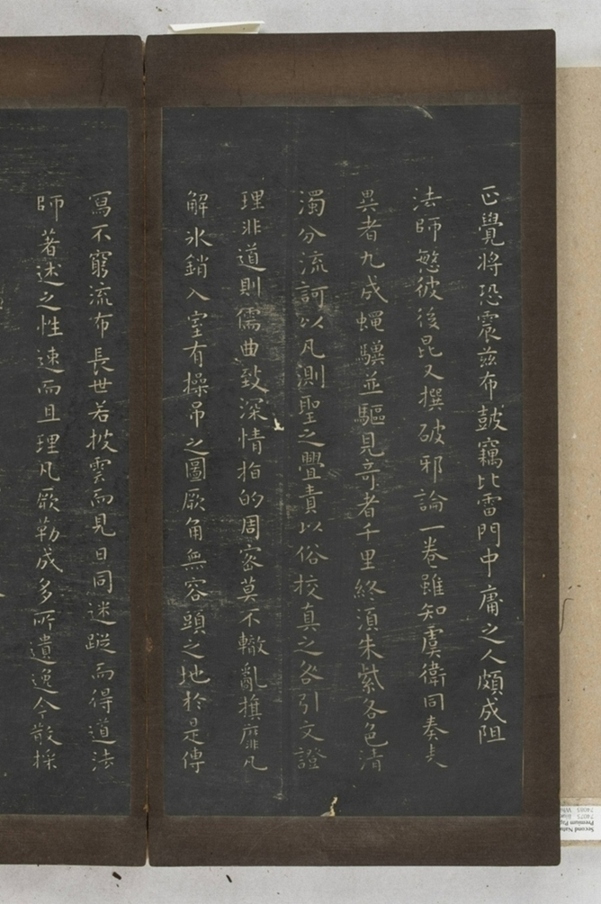 正覺將恐震茲布鼓竊比雷門中庸之人頗成阻
法師慜彼後昆又撰破邪論一卷雖知虞衛同奏夫
異者九成蠅驥並驅見奇者千里終須朱紫各色清
濁分流訶以凡測聖之舋責以俗校真之咎引文證
理非道則儒曲致深情指的周密莫不轍亂旗靡凡
解氷銷入室有操吊之圖厥角無容頭之地於是傳
寫不窮流布長世若披雲而見日同迷蹤而得道法
師著述之性速而且理凡厥勒成多所遺逸今散採